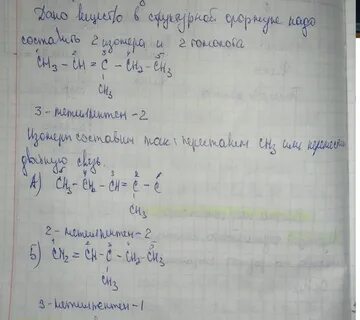 Дано вещество в структурной формуле надо
составить 2 изомера и 2 гомолога
1 2 3 4 5
CH3 - CH = C - CH2 - CH3
CH3
3-метилпентен-2
Изомеры составим так: переставим CH3 или
двойную связь
А) CH3 - CH2 - CH = C - C
CH3
2-метилпентен-2
Б) CH2 = CH - C - CH2 - CH3
CH3
3-метилпентен-1